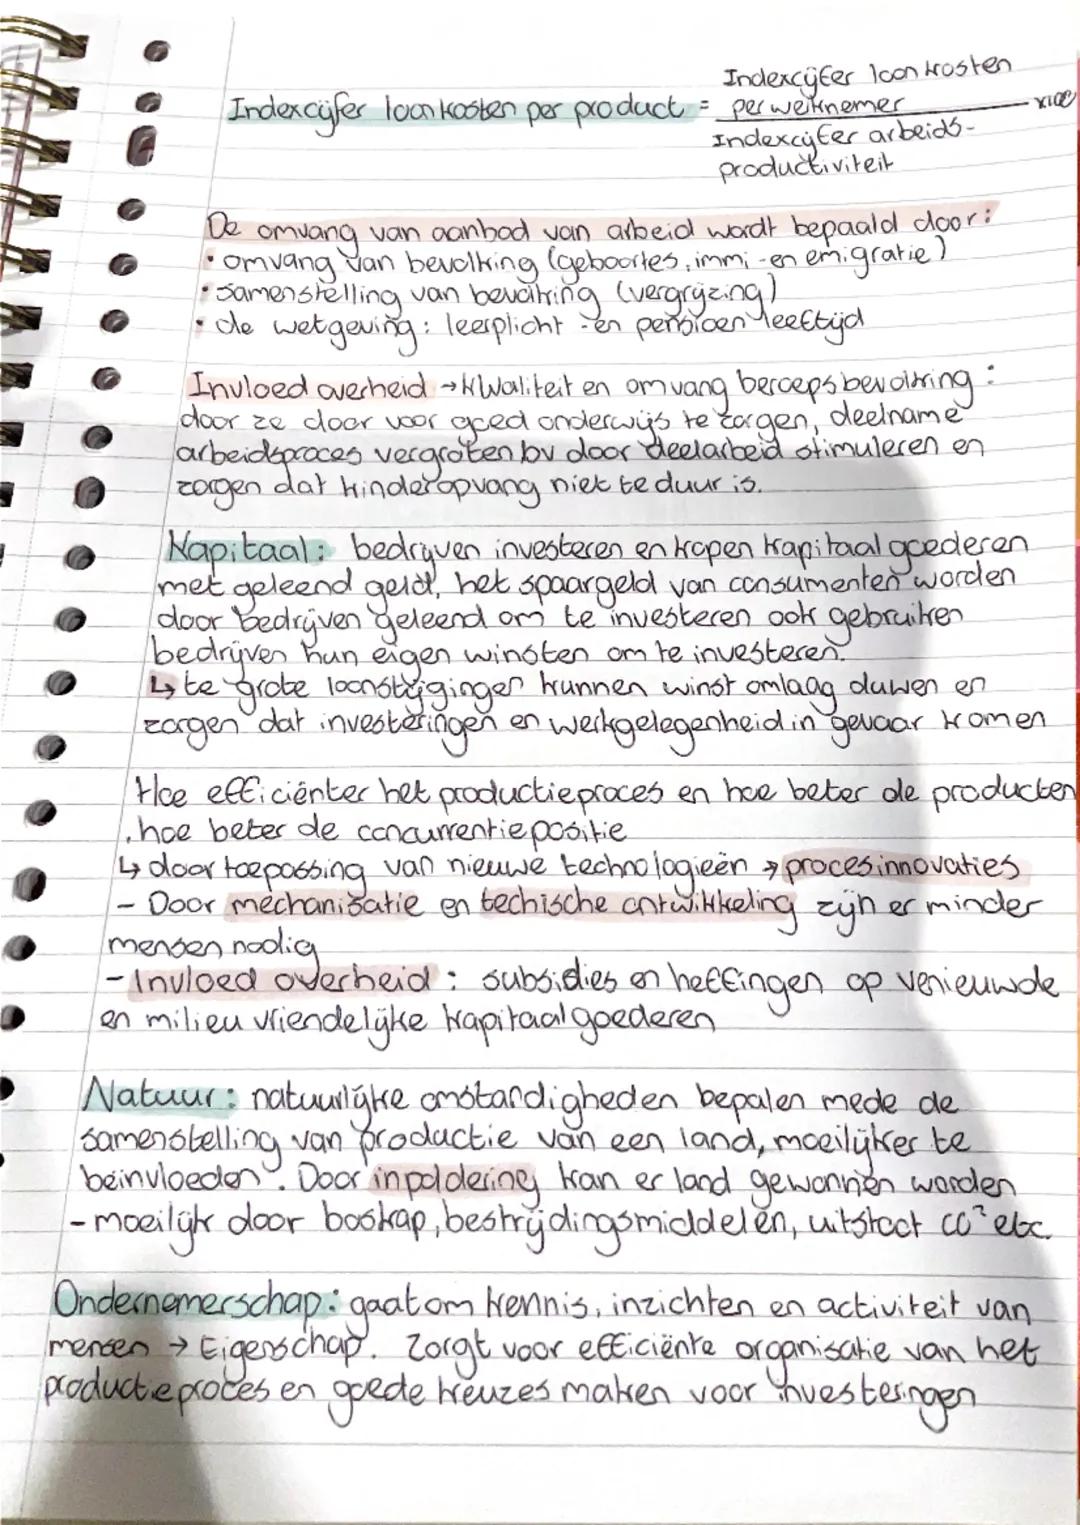 Indexcijfer loonkosten per product = Indexcijfer loonkosten per werknemer / Indexcijfer arbeids-productiviteit x100
De omvang van aanbod van arbeid wordt bepaald door:
• omvang van bevolking (geboortes, immi-en emigratie)
• samenstelling van bevolking (vergrijzing)
• de wetgeving: leerplicht -en pensioen leeftijd
Invloed overheid → kwaliteit en omvang beroepsbevolking:
door ze door voor goed onderwijs te zorgen, deelname
arbeidsproces vergroten bv door deelarbeid stimuleren en
zorgen dat kinderopvang niet te duur is.
Kapitaal: bedrijven investeren en kopen kapitaalgoederen
met geleend geld, het spaargeld van consumenten worden
door bedrijven geleend om te investeren ook gebruiken
bedrijven hun eigen winsten om te investeren.
↳ te grote loonstijgingen kunnen winst omlaag duwen en
zorgen dat investeringen en werkgelegenheid in gevaar komen
Hoe efficiënter het productieproces en hoe beter de producten
, hoe beter de concurrentiepositie
↳ door toepassing van nieuwe technologieën → procesinnovaties
- Door mechanisatie en techische ontwikkeling zijn er minder
mensen nodig
- Invloed overheid: subsidies en heffingen op venieuwde
en milieu vriendelijke kapitaalgoederen
Natuur: natuurlijke omstandigheden bepalen mede de
samenstelling van productie van een land, moeilijker te
beïnvloeden. Door inpoldering kan er land gewonnen worden
- moeilijk door boskap, bestrijdingsmiddelen, uitstoot co² etc.
Ondernemerschap: gaat om kennis, inzichten en activiteit van
mensen → Eigenschap. Zorgt voor efficiënte organisatie van het
productieproces en goede keuzes maken voor investeringen